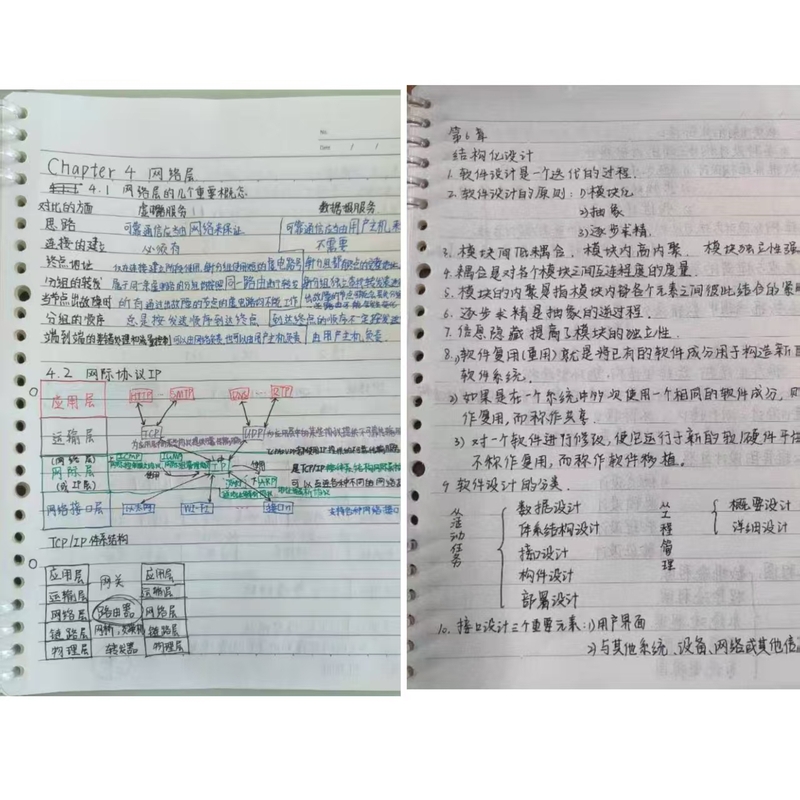 No.
Date
Chapter 4 网络层
4.1 网络层的几个重要概念
对比的方面 虚电路服务 数据报服务
思路 可靠通信应当由网络来保证 可靠通信应当由用户主机来
连接的建立 必须有 不需要
终点地址 仅在连接建立阶段使用,每个分组使用短的虚电路号 每个分组都有终点的完整地址
分组的转发 属于同一条虚电路的分组均按照同一路由进行转发 每个分组独立选择转发
当节点出故障时 所有通过出故障的节点的虚电路均不能工作
分组的顺序 总是按发送顺序到达终点 到达终点的顺序不一定按发送
端到端的差错处理和流量控制 可以由网络负责,也可以由用户主机负责 由用户主机负责
4.2 网际协议IP
应用层 HTTP … SMTP DNS … RTP
运输层 TCP UDP
(网络层) ICMP IGMP
网际层 IP
(或IP层) ARP
网络接口层 以太网 Wi-Fi 接口n 支持各种网络接口
TCP/IP 体系结构
应用层 网关 应用层
运输层 运输层
网络层 路由器 网络层
链路层 网桥,交换机 链路层
物理层 转发器 物理层
第6章
结构化设计
1. 软件设计是一个迭代的过程.
2. 软件设计的原则: 1) 模块化
2) 抽象
3) 逐步求精.
3. 模块间低耦合, 模块内高内聚, 模块独立性强
4. 耦合是对各个模块之间互连程度的度量.
5. 模块的内聚是指模块内部各个元素之间彼此结合的紧
6. 逐步求精是抽象的逆过程.
7. 信息隐藏提高了模块的独立性.
8. 1) 软件复用(重用)就是将已有的软件成分用于构造新
软件系统.
2) 如果是在一个系统中多次使用一个相同的软件成分, 则
作复用,而称作共享.
3) 对一个软件进行修改,使它运行于新的软/硬件平
不称作复用,而称作软件移植.
9 软件设计的分类.
从活动任务 数据设计 从工程管理 概要设计
体系结构设计 详细设计
接口设计
构件设计
部署设计
10. 接口设计三个重要元素: 1) 用户界面
2) 与其他系统、设备、网络或其他信